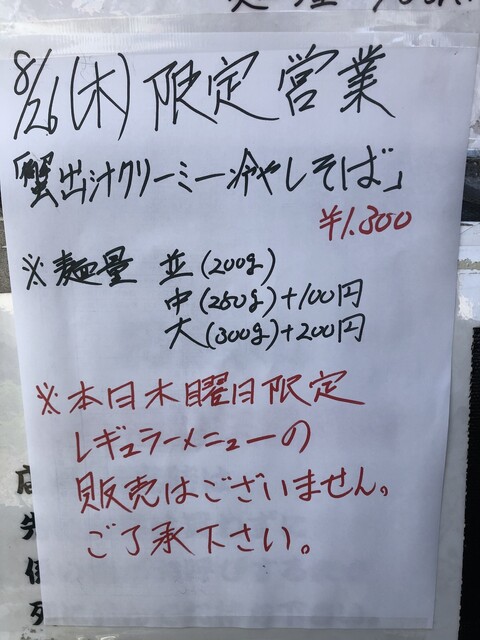 8/26(木)限定営業
「蟹出汁クリーミー冷やしそば」
¥1.300
※麺量 並(200g)
中(250g)+100円
大(300g)+200円
※本日木曜日限定
レギュラーメニューの
販売はございません。
ご了承下さい。